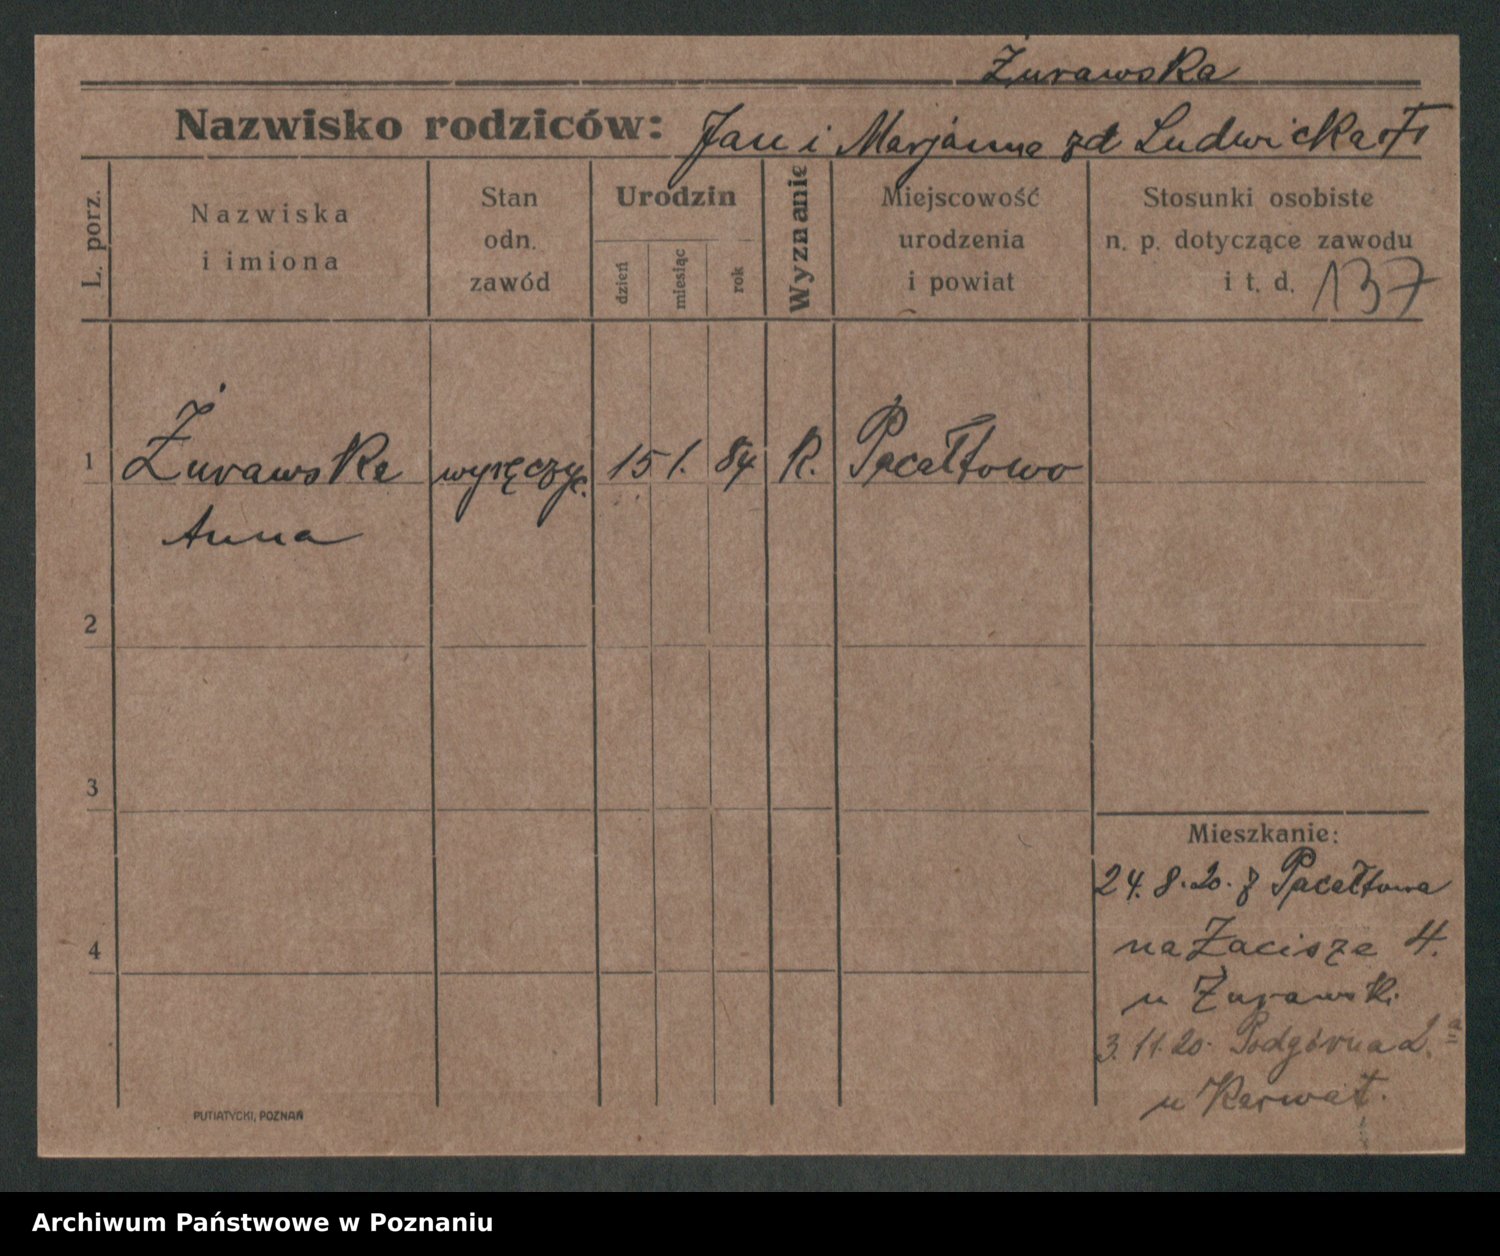 Żurawska
Nazwisko rodziców: Jan i Marjanna zd Ludwicka
L. porz.
Nazwiska
i imiona
Stan
odn.
zawód
Urodzin
dzień
miesiąc
rok
Wyznanie
Miejscowość
urodzenia
i powiat
Stosunki osobiste
n. p. dotyczące zawodu
i t. d. 137
1 Żurawska wyręczyc. 15 1. 84 K. Pacałtowo
Anna
2
3
4
Mieszkanie:
24.8.20. z Pacałtowa
na Zacisze 4.
u Żurawsk.
3.11.20. Podgórna 2.a
u Karwat.
PUTIATYCKI, POZNAŃ
Archiwum Państwowe w Poznaniu